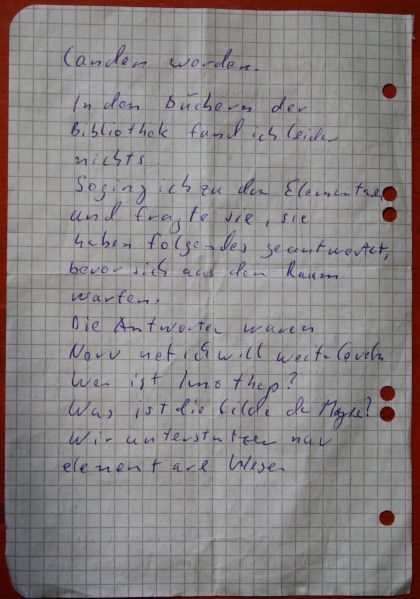 landen worden.
In den Büchern der
Bibliothek fand ich leider
nichts.
So ging ich zu den Elementen,
und fragte sie, sie
haben folgendes geantwortet,
bevor sich aus den Raum
warfen.
Die Antworten waren
Nerv net ich will weiter
Wer ist Imothep?
Was ist die Gilde der Magie?
Wir unterstützen nur
elementare Wesen